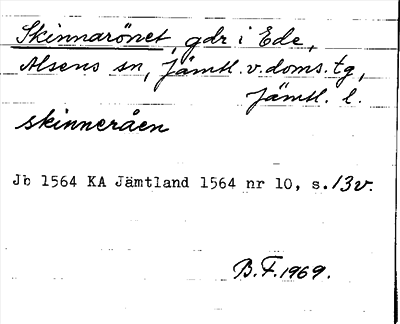 Skinnarönet, gdr i Ede,
Alsens sn, Jämtl. v. doms. tg,
Jämtl. l.
skinneråen
Jb 1564 KA Jämtland 1564 nr 10, s. 13v.
B.F. 1969.